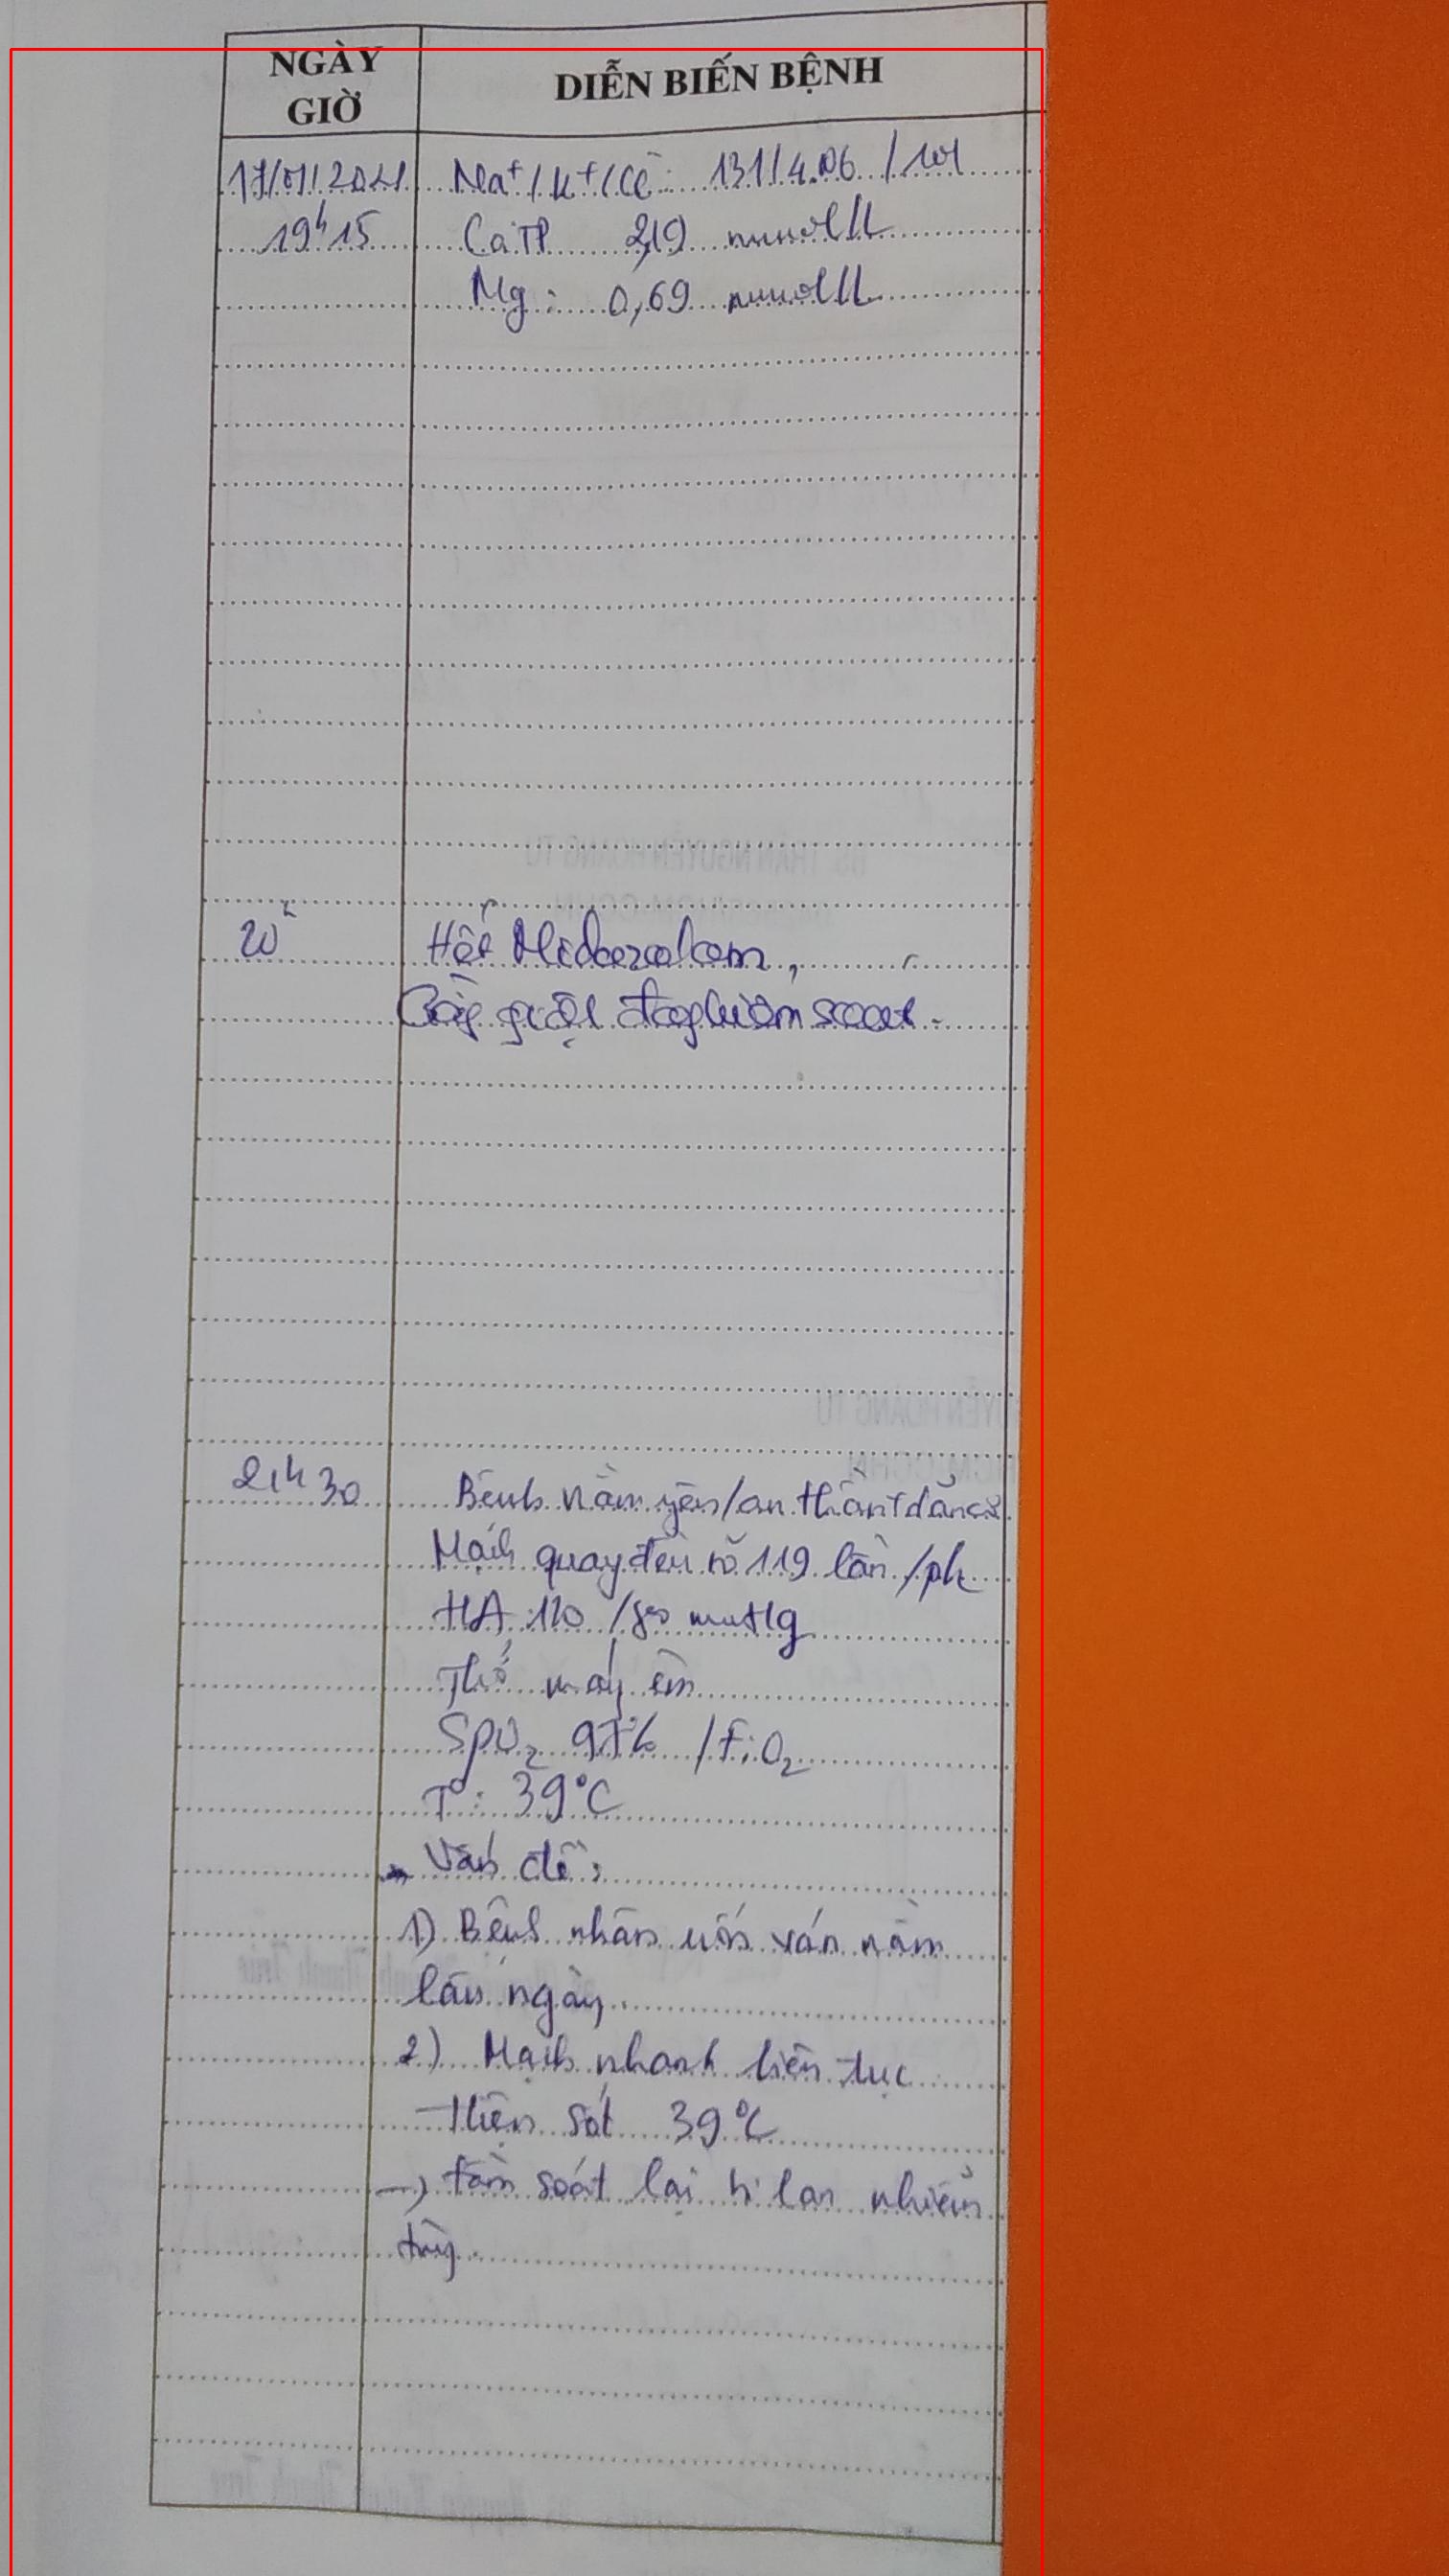 NGÀY GIỜ
DIỄN BIẾN BỆNH
17/01/2021 Na+ / K+ / Cl- : 131/4.06 / 101
19h15 Ca TP 2,19 mmol/L
Mg : 0,69 mmol/L
20h Hết Midazolam,
Còn giật đang kiểm soát.
21h30 Bệnh nằm yên/an thần + dãn cơ
Mạch quay đều rõ 119 lần /ph
HA : 110 /80 mmHg
Thở máy êm
SpO2 97% / FiO2
T° : 39°C
Vấn đề :
1) Bệnh nhân uốn ván nằm
lâu ngày
2) Mạch nhanh liên tục
Hiện sốt 39°C
→ tầm soát lại h lan nhiễm
trùng.